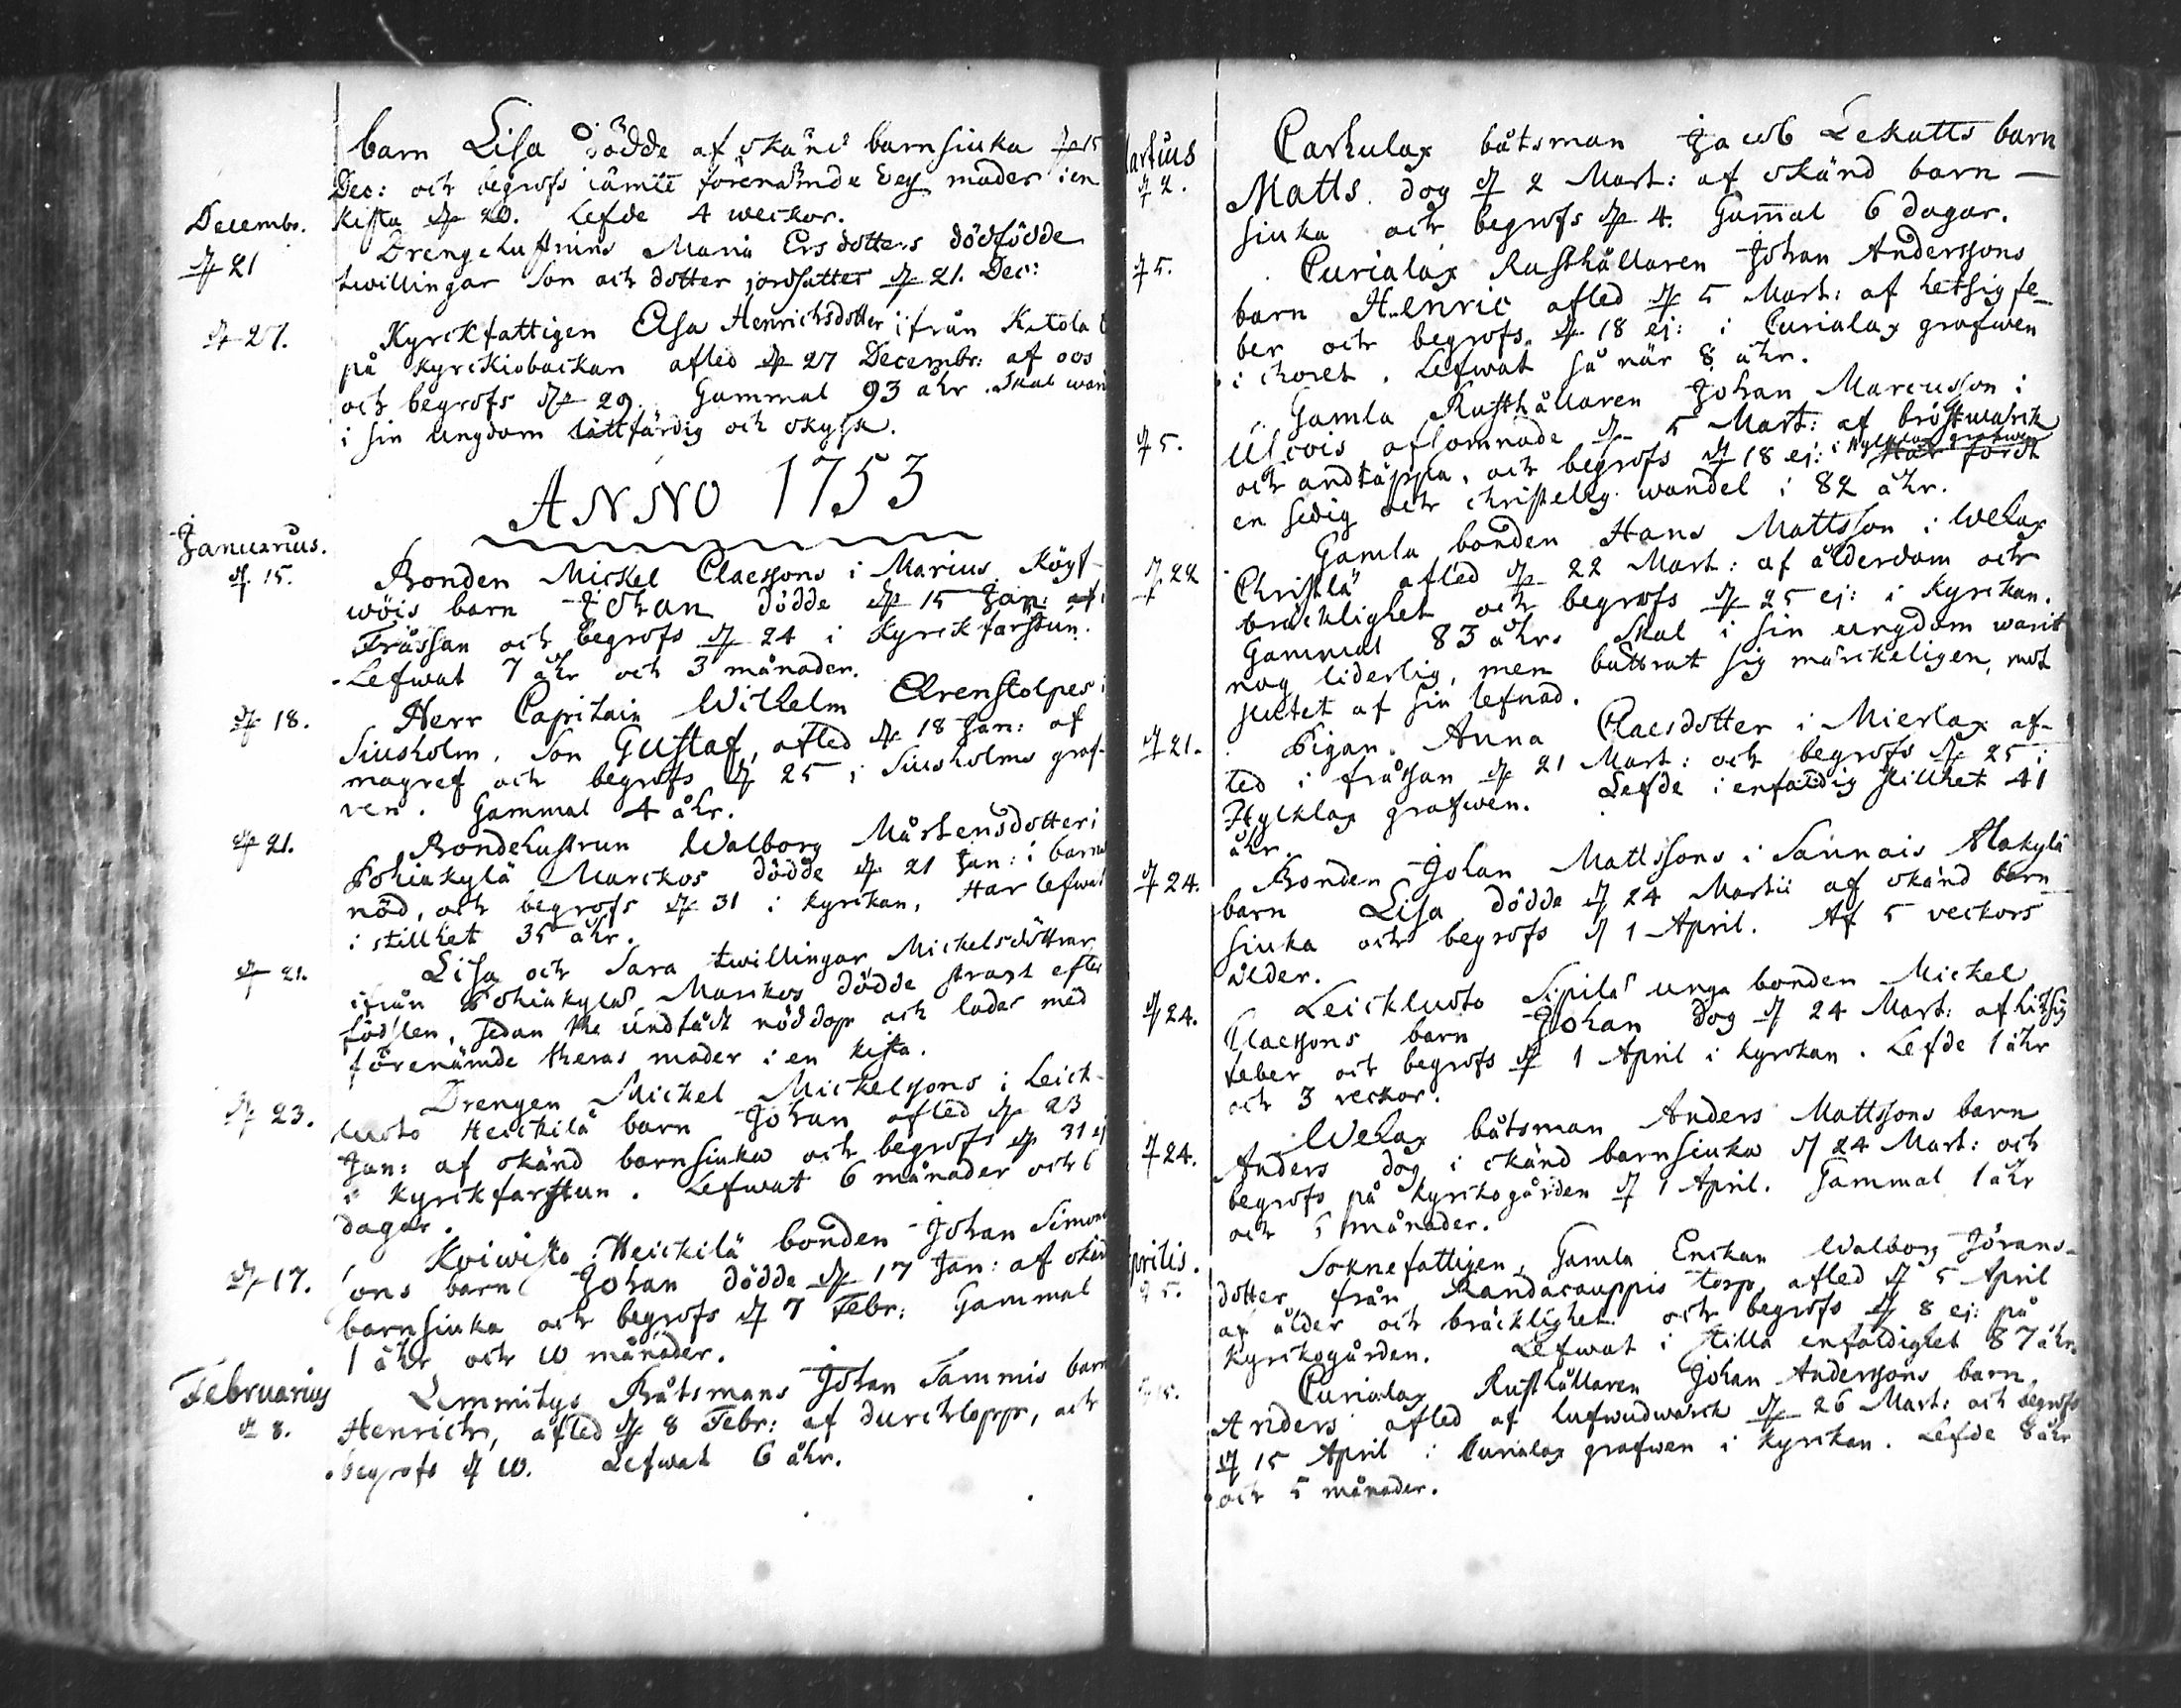 barn Lisa dödde af okänd barnsiuka d. 15
Dec: och begrofs jämte förenämnde des moder i en
Decembr. kista d. 20. Lefde 4 weckor.
Drengehustruns Maria Ersdotters dödfödde
d. 21 twillingar son och dotter jordsattes d. 21. Dec:
d. 27. Kyrckfattigen Elsa Henrichsdotter ifrån Ketola
på kyrckiobackan afled d. 27 Decembr: af
och begrofs d. 29. Gammal 93 åhr. Skal warit
i sin ungdom lättfärdig och okysk.
ANNO 1753
Januarius.
d. 15. Bonden Mickel Claessons i Marius
wöis barn Johan dödde d. 15 Jan: af
Frässan och begrofs d. 24 i kyrckfarstun.
Lefwat 7 åhr och 3 månader.
d. 18. Herr Capitain Wilhelm Ehrenstolpes i
Siusholm. Son Gustaf, afled d. 18 Jan: af
magref och begrofs d. 25 i Siusholms graf-
ven. Gammal 4 åhr.
d. 21. Bondehustrun Walborg Mårtensdotter i
Pohiakylä Marckos dödde d. 21 Jan: i barns
nöd, och begrofs d. 31 i kyrckan, Har lefwat
i stillhet 35 åhr.
d. 21. Lisa och Sara twillingar Mickelsdöttrar
ifrån Pohiakylä Marckos dödde strart efter
födslen, sedan the undfådt nöddop och lades med
förenämde theras moder i en kista.
d. 23. Drengen Mickel Mickelssons i Leick-
luoto Heickilä barn Johan afled d. 23
Jan: af okänd barnsiuka och begrofs d. 31 ej:
i kyrckfarstun. Lefwat 6 månader och 6
dagar.
d. 17. Koiwisto Heickilä bonden Johan Simons-
sons barn Johan dödde d. 17 Jan: af okänd
barnsiuka och begrofs d. 7 Febr: Gammal
1 åhr och 10 månader.
Februarius
d. 8. Lemmitys Båtsmans Johan Sammis barn
Henrich, afled d. 8 Febr: af durchlopp, och
begrofs d. 10. Lefwat 6 åhr.
Martius
d. 2. Carkulax båtsman Jacob Lekatts barn
Matts dog d. 2 Mart: af okänd barn-
siuka och begrofs d. 4. Gam̄al 6 dagar.
d. 5. Curialax Rusthållaren Johan Anderssons
barn Henric afled d. 5 Mart: af hetsig fe-
ber och begrofs d. 18 ej: i Curialax grafwen
i choret. Lefwat så när 8 åhr.
d. 5. Gamla Rusthållaren Johan Marcusson i
afsomnade d. 5 Mart: af bröstwärk
och andtäppa, och begrofs d. 18 ej: i grafwen Har fördt
en sedig och christelig wandel i 82 åhr.
d. 22 Gamla bonden Hans Mattsson i Welax
afled d. 22 Mart: af ålderdom och
bräcklighet och begrofs d. 25 ej: i kyrckan.
Gammal 83 åhr. Skal i sin ungdom warit
nog liderlig, men bättrat sig märckeligen, mot
slutet af sin lefnad.
d. 21. Pigan Anna Claesdotter i Mierlax af-
led i frässan d. 21 Mart: och begrofs d. 25 i
Hylcklax grafwen. Lefde i enfaldig stillhet 41
åhr.
d. 24. Bonden Johan Mattssons i Sannais Alakylä
barn Lisa dödde d. 24 Martii af okänd barn-
siuka och begrofs d. 1 April. Af 5 veckors
ålder.
d. 24. Leickluoto Sipilä unga bonden Mickel
Claessons barn Johan dog d. 24 Mart: af hitsig
feber och begrofs d. 1 April i kyrckan. Lefde 1 åhr
och 3 veckor.
d. 24. Welax båtsman Anders Mattssons barn
Anders dog i okänd barnsiuka d. 24 Mart: och
begrofs på kyrckogården d. 1 April. Gammal 1 åhr
och 5 månader.
Aprilis.
d. 5. Soknefattigen, Gamla Enckan Walborg Jörans-
dotter från Randacauppis torp, afled d. 5 April
af ålder och bräcklighet och begrofs d. 8 ej: på
kyrckogården. Lefwat i stilla enfaldighet 87 åhr.
Curialax Rusthållaren Johan Anderssons barn
Anders afled af hufwudwärck d. 26 Mart: och begrofs
d. 15 April i Curialax grafwen i kyrckan. Lefde 8 åhr
och 5 månader.